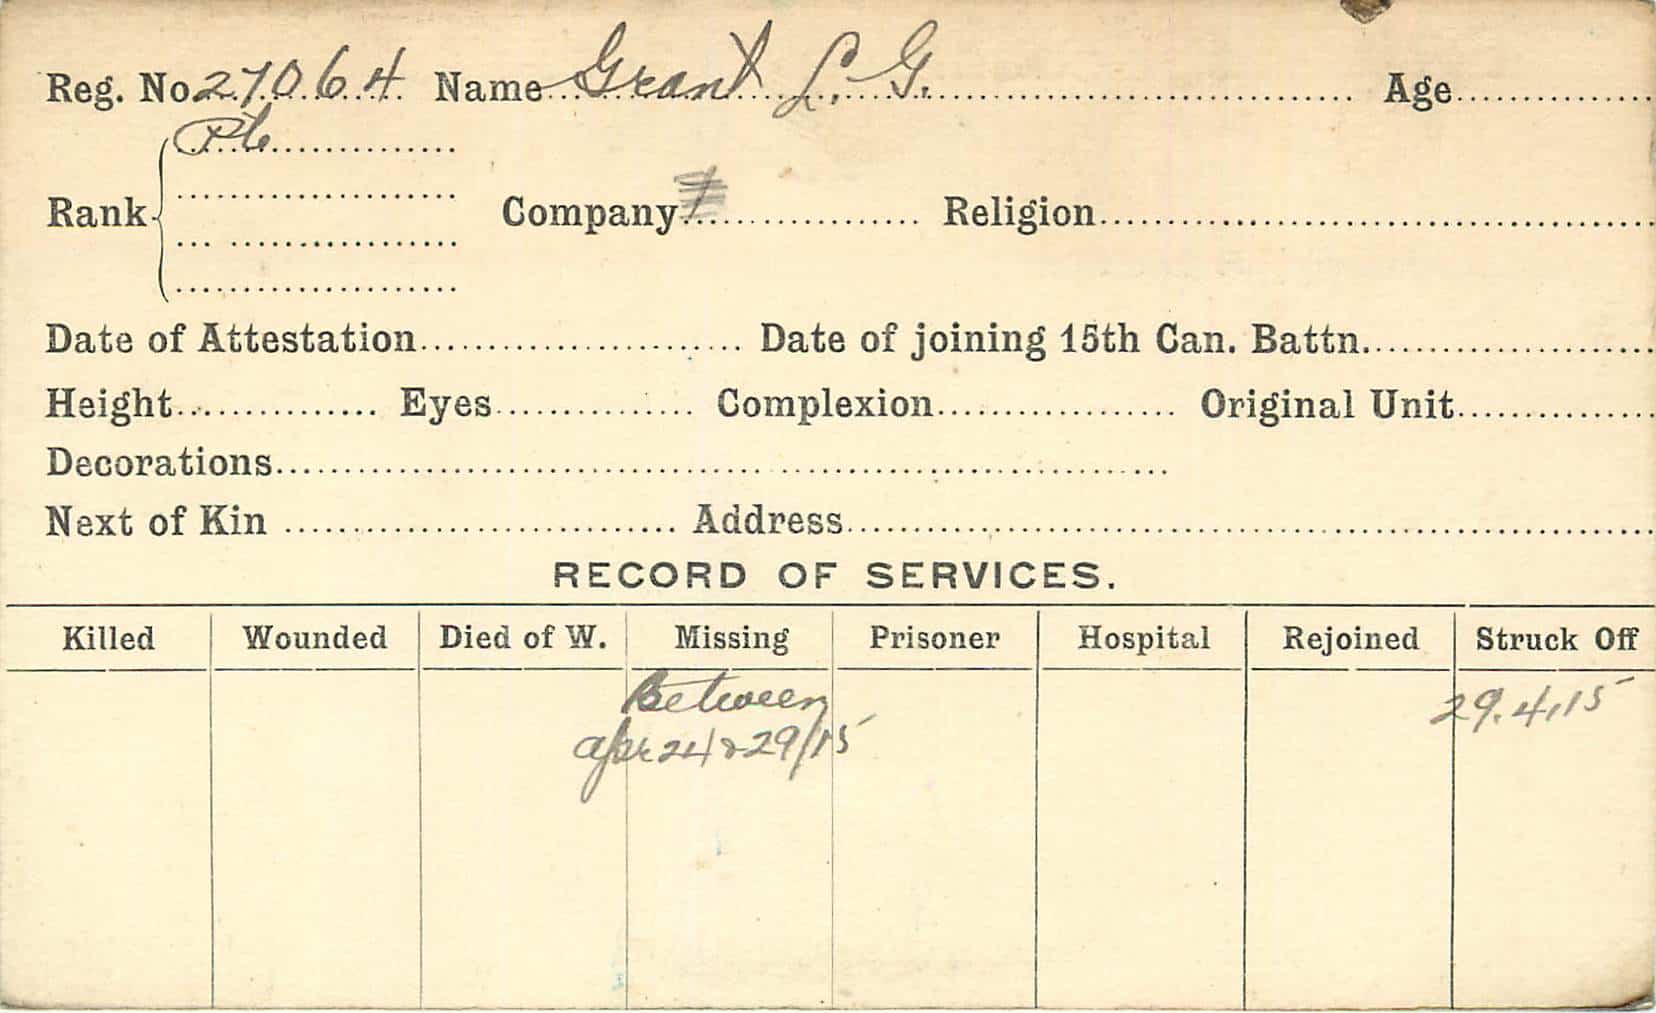 Reg. No. 27064 Name Grant L. G. Age
Pte
Rank Company Religion
Date of Attestation Date of joining 15th Can. Battn.
Height Eyes Complexion Original Unit
Decorations
Next of Kin Address
RECORD OF SERVICES.
Killed Wounded Died of W. Missing Prisoner Hospital Rejoined Struck Off
Between 29.4.15
Apr 24 & 29/15